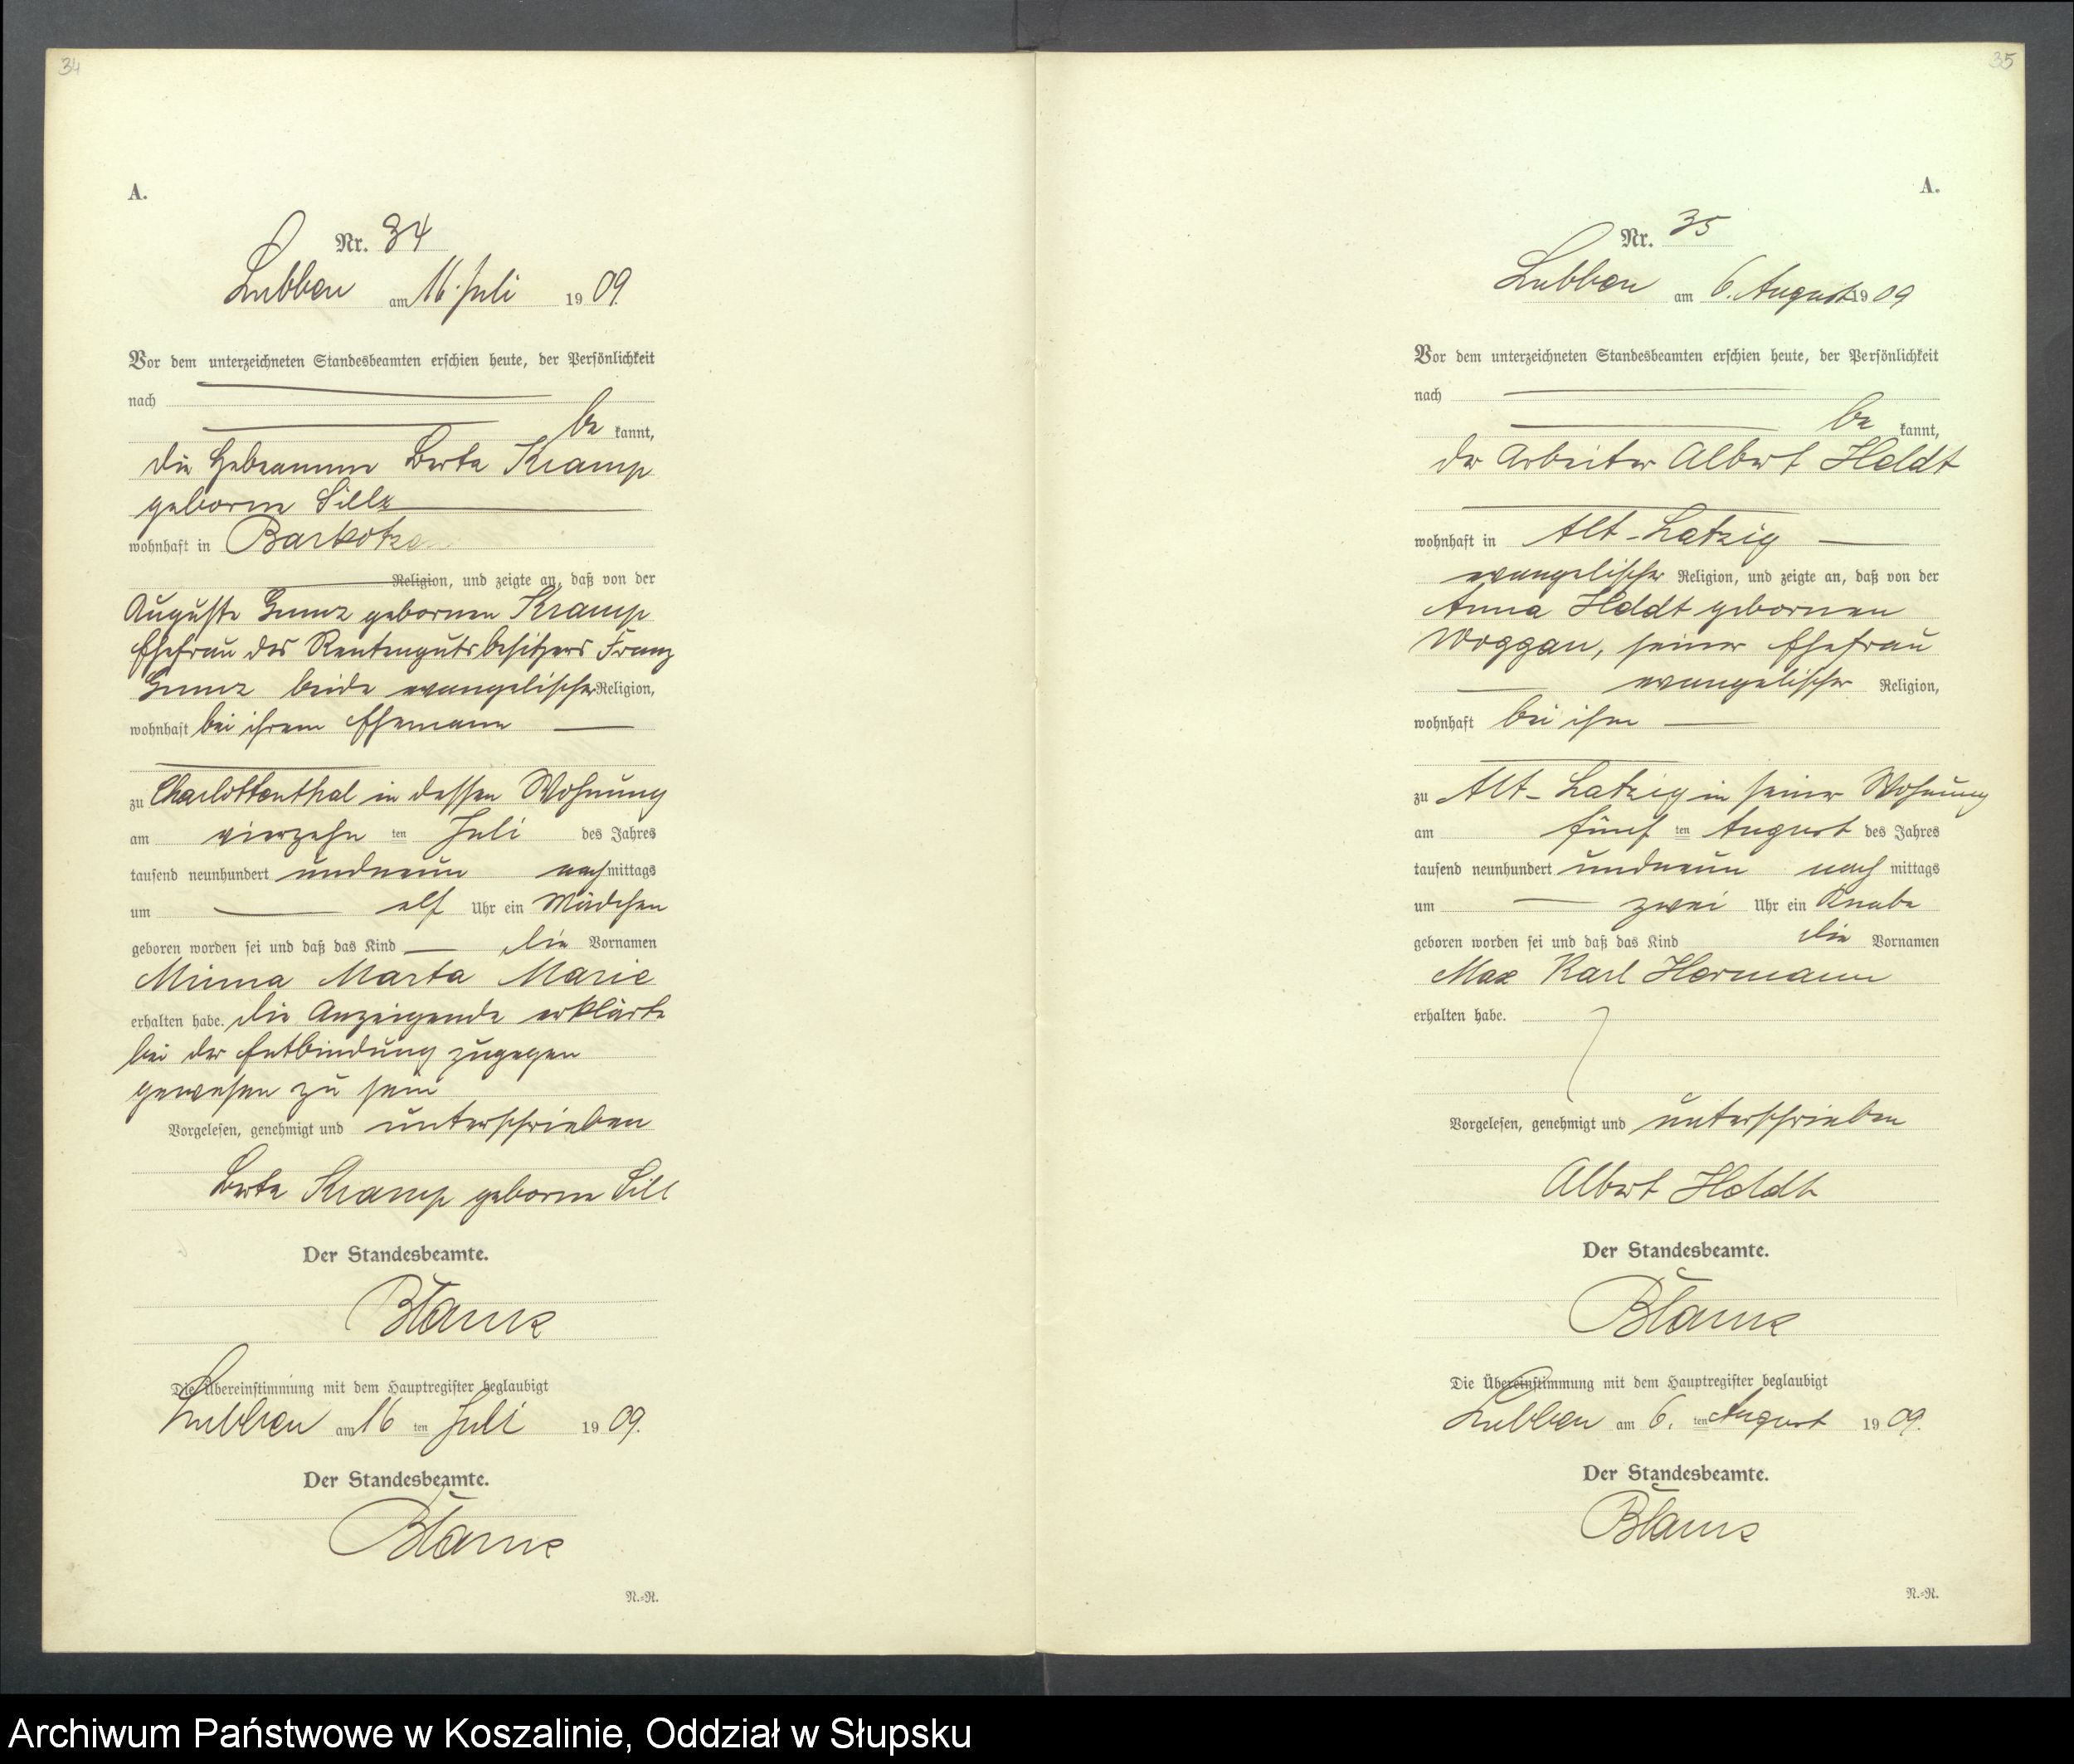 34
A.
Nr. 34
Lubben am 16. Juli 1909.
Vor dem unterzeichneten Standesbeamten erschien heute, der Persönlichkeit
nach
be kannt,
die Hebeamme Berta Kramp
geborne Sill
wohnhaft in Barkotzen
Religion, und zeigte an, daß von der
Auguste gebornen Kramp
Ehefrau des Rentengutsbesitzers Franz
beide evangelischer Religion,
wohnhaft bei ihrem Ehemann
zu Charlottenthal in dessen Wohnung
am vierzehn ten Juli des Jahres
tausend neunhundert undneun nachmittags
um elf Uhr ein Mädchen
geboren worden sei und daß das Kind die Vornamen
Minna Marta Marie
erhalten habe. die Anzeigende erklärte
bei der Entbindung zugegen
gewesen zu sein
Vorgelesen, genehmigt und unterschrieben
Berta Kramp geborne Sill
Der Standesbeamte.
Die Übereinstimmung mit dem Hauptregister beglaubigt
Lubben am 16 ten Juli 1909.
Der Standesbeamte.
N.=R.
35
A.
Nr. 35
Lubben am 6. August 1909
Vor dem unterzeichneten Standesbeamten erschien heute, der Persönlichkeit
nach
be kannt,
der Arbeiter Albert Holdt
wohnhaft in Alt-Latzig
evangelischer Religion, und zeigte an, daß von der
Anna Holdt gebornen
Woggan, seiner Ehefrau
evangelischer Religion,
wohnhaft bei ihm
zu Alt-Latzig in seiner Wohnung
am fünf ten August des Jahres
tausend neunhundert undneun nach mittags
um zwei Uhr ein Knabe
geboren worden sei und daß das Kind die Vornamen
Max Karl Hermann
erhalten habe.
Vorgelesen, genehmigt und unterschrieben
Albert Holdt
Der Standesbeamte.
Die Übereinstimmung mit dem Hauptregister beglaubigt
Lubben am 6. ten August 1909.
Der Standesbeamte.
N.=R.
Archiwum Państwowe w Koszalinie, Oddział w Słupsku